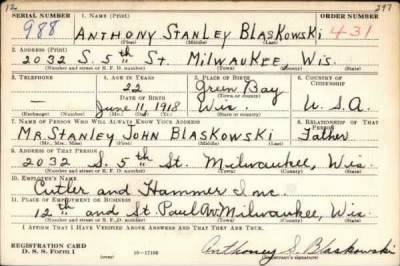 12 297
SERIAL NUMBER 1. NAME (Print) ORDER NUMBER
988 ANTHONY STANLEY BLASKOWSKI 431
(First) (Middle) (Last)
2. ADDRESS (Print)
2032 S. 5th St. MILWAUKEE, WIS.
(Number and street or R. F. D. number) (Town) (County) (State)
3. TELEPHONE 4. AGE IN YEARS 5. PLACE OF BIRTH 6. COUNTRY OF CITIZENSHIP
22 Green Bay
DATE OF BIRTH (Town or county)
— June 11, 1918 Wis. U.S.A.
(Exchange) (Number) (Mo.) (Day) (Yr.) (State or country)
7. NAME OF PERSON WHO WILL ALWAYS KNOW YOUR ADDRESS 8. RELATIONSHIP OF THAT PERSON
MR. STANLEY JOHN BLASKOWSKI Father
(Mr., Mrs., Miss) (First) (Middle) (Last)
9. ADDRESS OF THAT PERSON
2032 S. 5th St. Milwaukee, Wis.
(Number and street or R. F. D. number) (Town) (County) (State)
10. EMPLOYER'S NAME
Cutler and Hammer Inc.
11. PLACE OF EMPLOYMENT OR BUSINESS
12th and St. Paul Av. Milwaukee, Wis.
(Number and street or R. F. D. number) (Town) (County) (State)
I AFFIRM THAT I HAVE VERIFIED ABOVE ANSWERS AND THAT THEY ARE TRUE.
REGISTRATION CARD
D. S. S. Form 1 16—17105 Anthoney S. Blaskowski
(Registrant's signature)